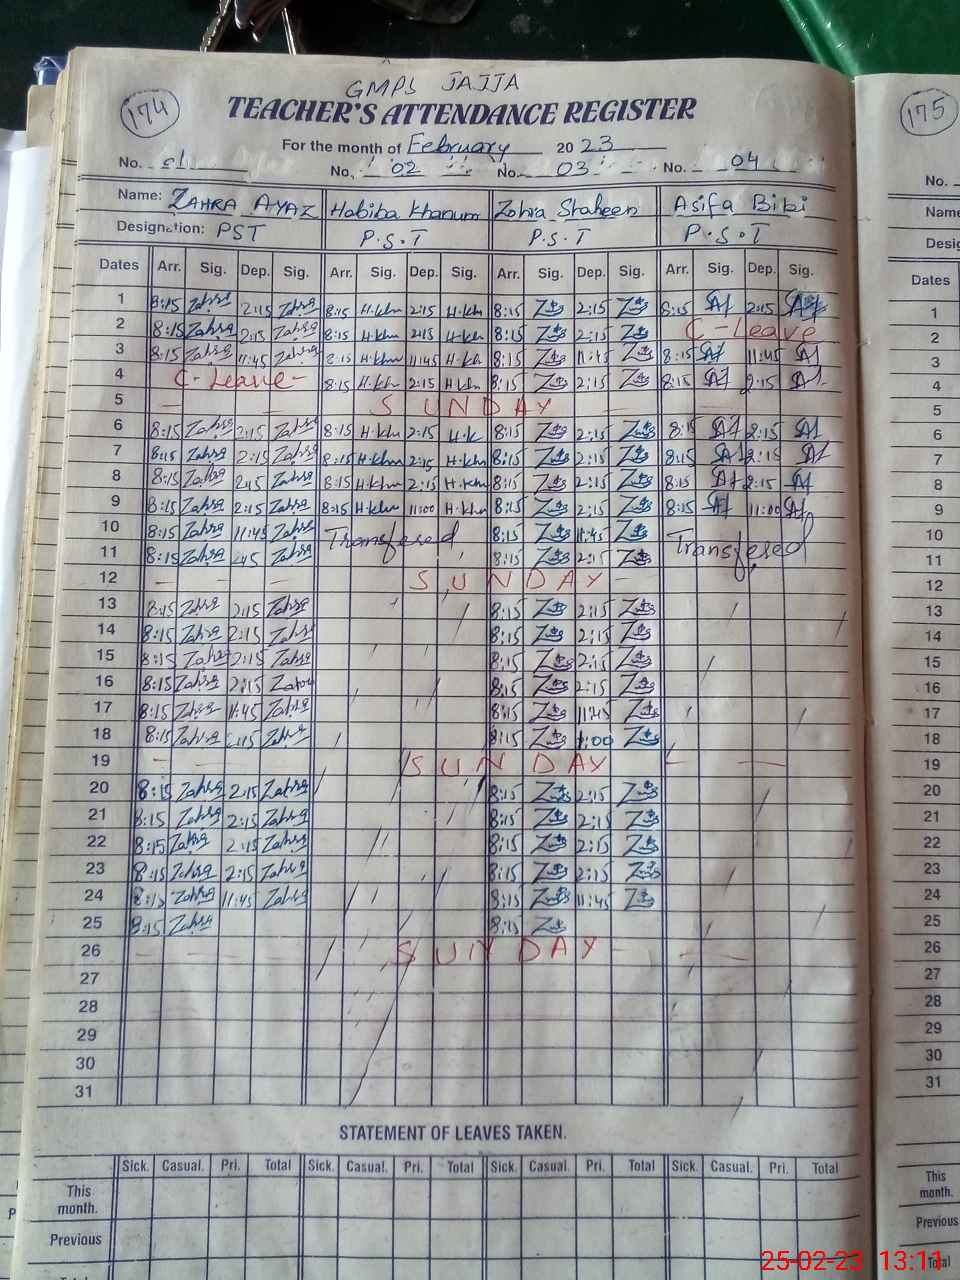 GMPS JAJJA
174
TEACHER'S ATTENDANCE REGISTER
175
For the month of February 2023
No. 01 No. 02 No. 03 No. 04
No.
Name: ZAHRA AYAZ Habiba Khanum Zohra Shaheen Asifa Bibi
Name
Designation: PST P.S.T P.S.T P.S.T
Desig
Dates Arr. Sig. Dep. Sig. Arr. Sig. Dep. Sig. Arr. Sig. Dep. Sig. Arr. Sig. Dep. Sig.
Dates
1 8:15 Zahra 2:15 Zahra 8:15 H.khn 2:15 H.khn 8:15 2:15 8:15 AJ 2:15 AJ 1
2 8:15 Zahra 2:15 Zahra 8:15 H.khn 2:15 H.khn 8:15 2:15 C-Leave 2
3 8:15 Zahra 11:45 Zahra 8:15 H.khn 11:45 H.kh 8:15 11:45 8:15 AJ 11:45 AJ 3
4 C-Leave- 8:15 H.khn 2:15 H.khn 8:15 2:15 8:15 AJ 2:15 AJ 4
5 SUNDAY 5
6 8:15 Zahra 2:15 Zahra 8:15 H.khn 2:15 H.k 8:15 2:15 8:15 AJ 2:15 AJ 6
7 8:15 Zahra 2:15 Zahra 8:15 H.khn 2:15 H.khn 8:15 2:15 8:15 AJ 2:15 AJ 7
8 8:15 Zahra 2:15 Zahra 8:15 H.khn 2:15 H.khn 8:15 2:15 8:15 AJ 2:15 AJ 8
9 8:15 Zahra 2:15 Zahra 8:15 H.khn 11:00 H.khn 8:15 2:15 8:15 AJ 11:00 AJ 9
10 8:15 Zahra 11:45 Zahra Transfered 8:15 11:45 Transfered 10
11 8:15 Zahra 2:15 Zahra 8:15 2:15 11
12 SUNDAY 12
13 8:15 Zahra 2:15 Zahra 8:15 2:15 13
14 8:15 Zahra 2:15 Zahra 8:15 2:15 14
15 8:15 Zahra 2:15 Zahra 8:15 2:15 15
16 8:15 Zahra 2:15 Zahra 8:15 2:15 16
17 8:15 Zahra 11:45 Zahra 8:15 11:45 17
18 8:15 Zahra 2:15 Zahra 8:15 1:00 18
19 SUNDAY 19
20 8:15 Zahra 2:15 Zahra 8:15 2:15 20
21 8:15 Zahra 2:15 Zahra 8:15 2:15 21
22 8:15 Zahra 2:15 Zahra 8:15 2:15 22
23 8:15 Zahra 2:15 Zahra 8:15 2:15 23
24 8:15 Zahra 11:45 Zahra 8:15 11:45 24
25 8:15 Zahra 8:15 25
26 SUNDAY 26
27 27
28 28
29 29
30 30
31 31
STATEMENT OF LEAVES TAKEN.
Sick. Casual. Pri. Total Sick. Casual. Pri. Total Sick. Casual. Pri. Total Sick. Casual. Pri. Total
This month.
This month.
Previous
Previous
Total
25-02-23 13:11